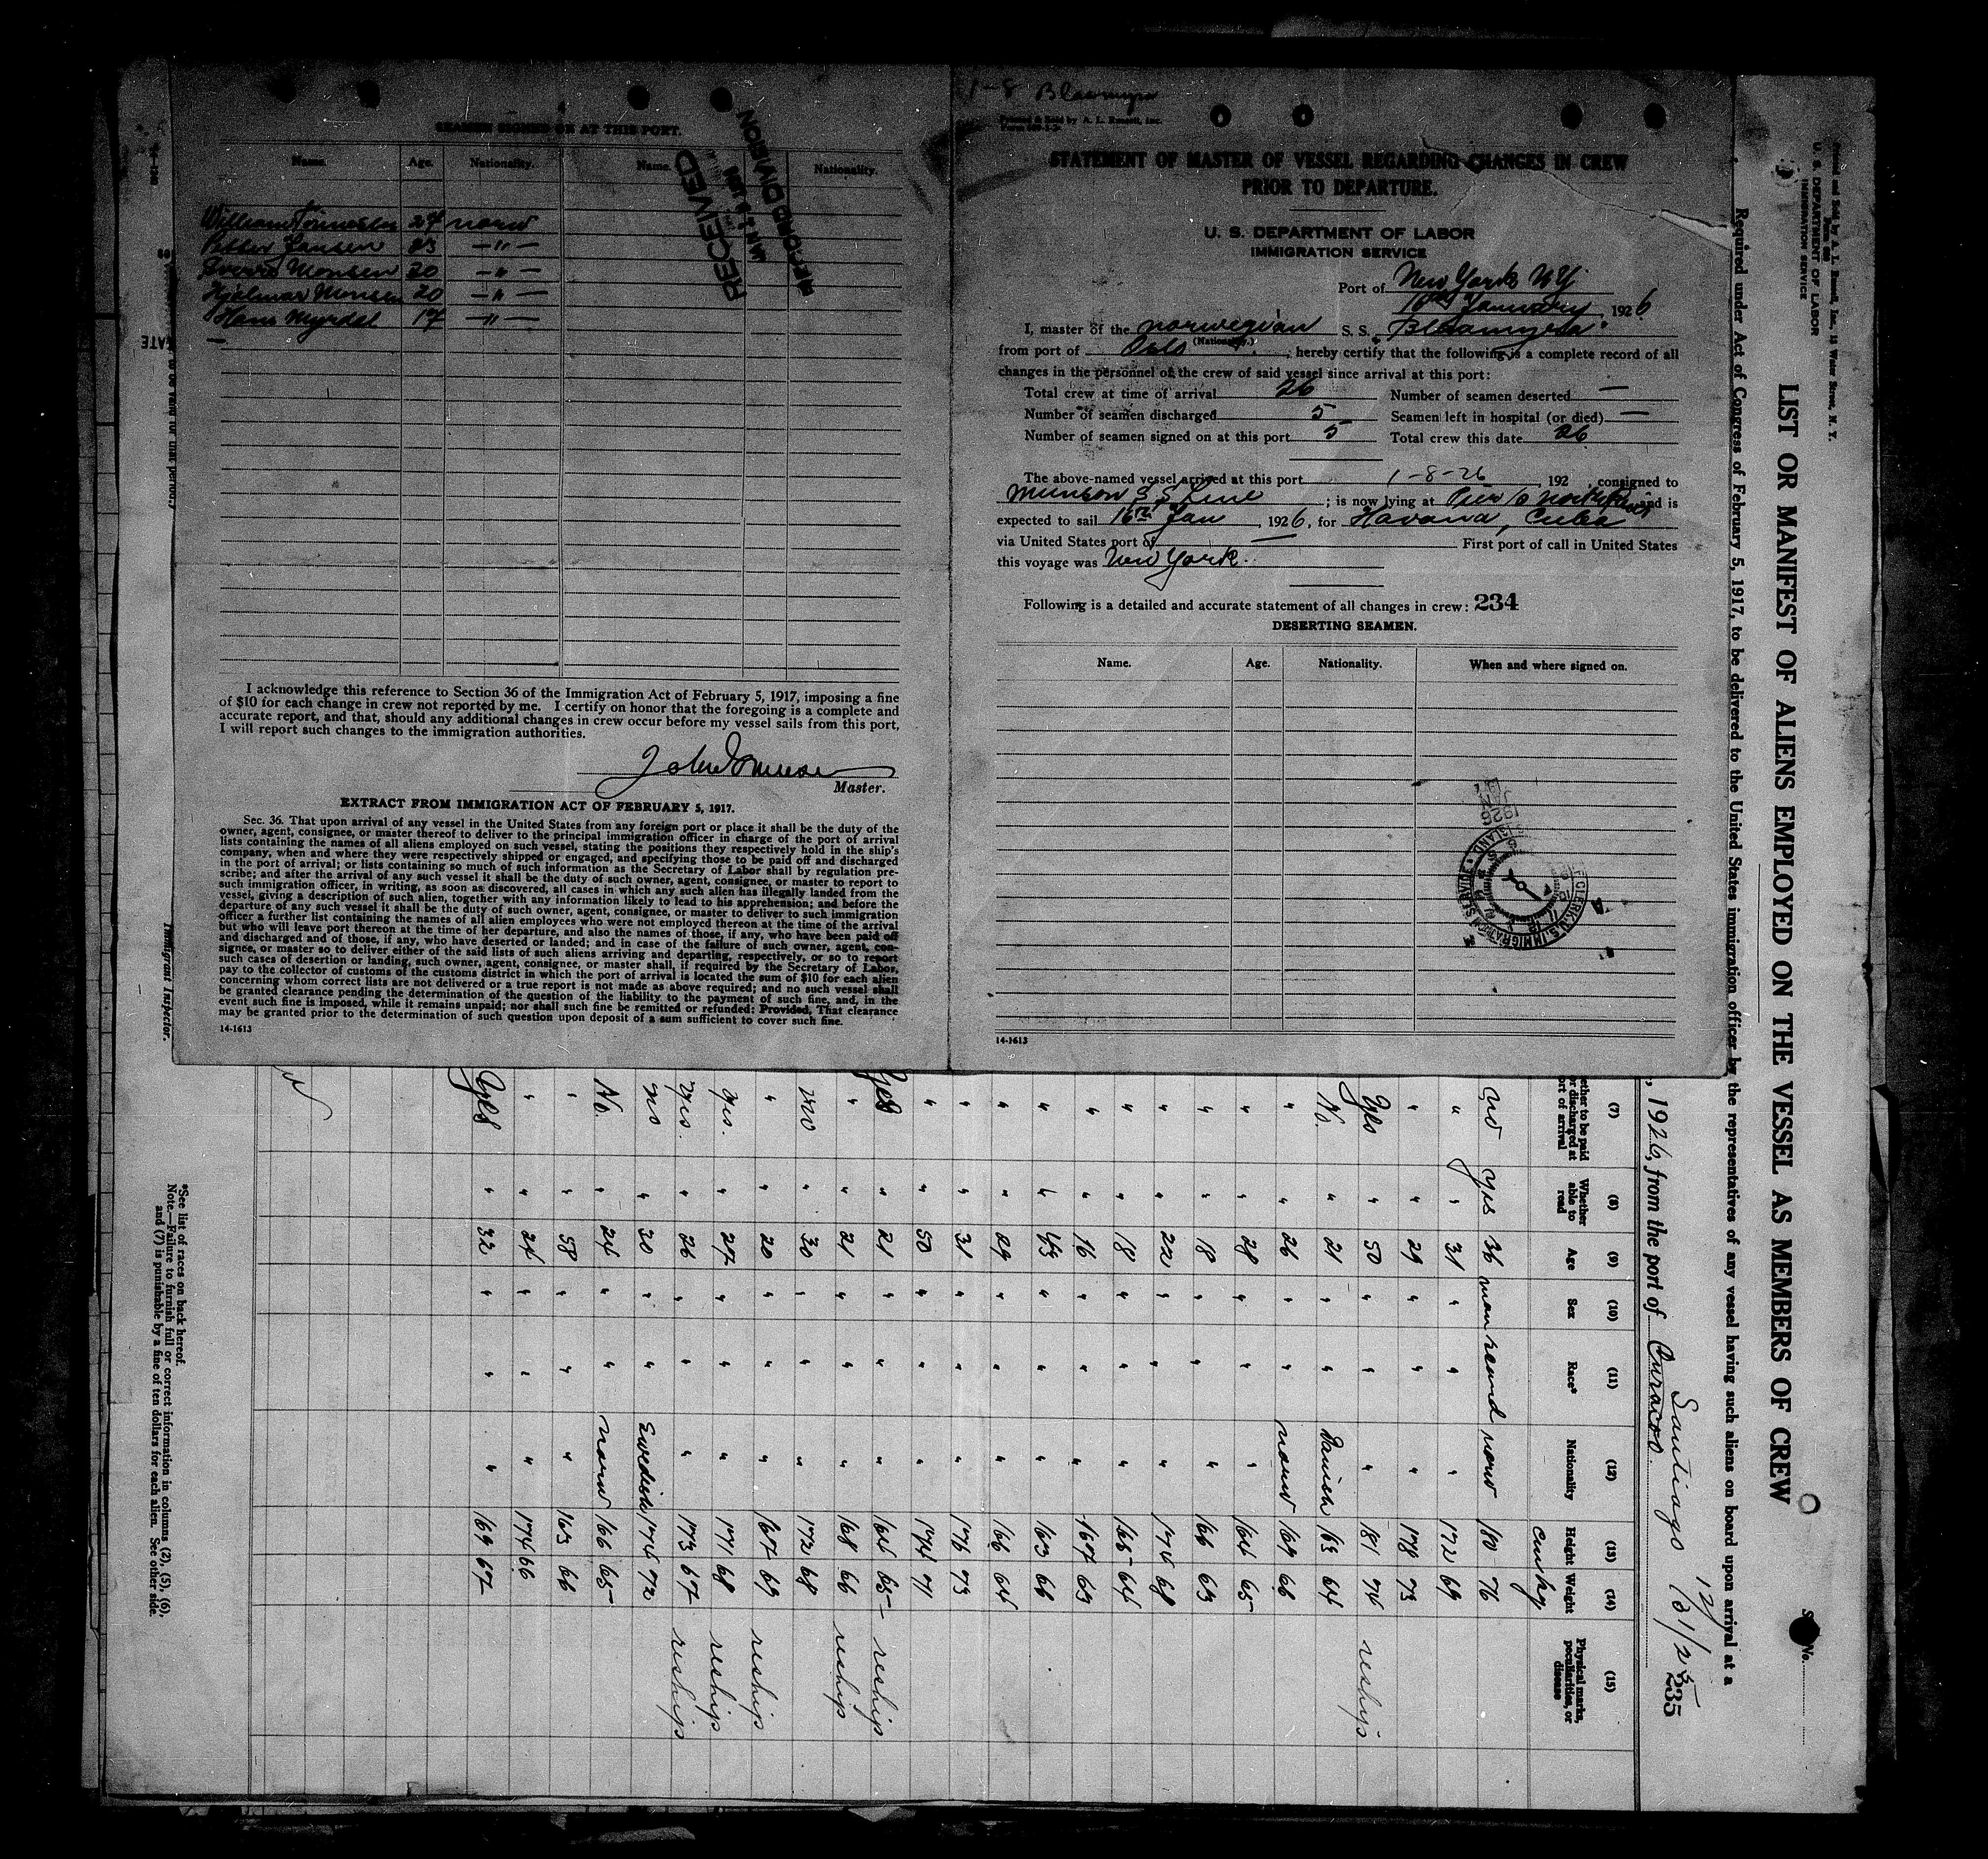 SEAMEN SIGNED ON AT THIS PORT.
Name. Age. Nationality. Name. Nationality.
RECEIVED
JAN 26
RECORD DIVISION
William 27 norw
Petter Jansen 23 —"—
Sverre Monsen 20 —"—
Hjalmar Monsen 20 —"—
Hans Myrdal 17 —"—
I acknowledge this reference to Section 36 of the Immigration Act of February 5, 1917, imposing a fine
of $10 for each change in crew not reported by me. I certify on honor that the foregoing is a complete and
accurate report, and that, should any additional changes in crew occur before my vessel sails from this port,
I will report such changes to the immigration authorities.
Master.
EXTRACT FROM IMMIGRATION ACT OF FEBRUARY 5, 1917.
Sec. 36. That upon arrival of any vessel in the United States from any foreign port or place it shall be the duty of the
owner, agent, consignee, or master thereof to deliver to the principal immigration officer in charge of the port of arrival
lists containing the names of all aliens employed on such vessel, stating the positions they respectively hold in the ship's
company, when and where they were respectively shipped or engaged, and specifying those to be paid off and discharged
in the port of arrival; or lists containing so much of such information as the Secretary of Labor shall by regulation pre-
scribe; and after the arrival of any such vessel it shall be the duty of such owner, agent, consignee, or master to report to
such immigration officer, in writing, as soon as discovered, all cases in which any such alien has illegally landed from the
vessel, giving a description of such alien, together with any information likely to lead to his apprehension; and before the
departure of any such vessel it shall be the duty of such owner, agent, consignee, or master to deliver to such immigration
officer a further list containing the names of all alien employees who were not employed thereon at the time of the arrival
but who will leave port thereon at the time of her departure, and also the names of those, if any, who have been paid off
and discharged and of those, if any, who have deserted or landed; and in case of the failure of such owner, agent, con-
signee, or master so to deliver either of the said lists of such aliens arriving and departing, respectively, or so to report
such cases of desertion or landing, such owner, agent, consignee, or master shall, if required by the Secretary of Labor,
pay to the collector of customs of the customs district in which the port of arrival is located the sum of $10 for each alien
concerning whom correct lists are not delivered or a true report is not made as above required; and no such vessel shall
be granted clearance pending the determination of the question of the liability to the payment of such fine, and, in the
event such fine is imposed, while it remains unpaid; nor shall such fine be remitted or refunded: Provided, That clearance
may be granted prior to the determination of such question upon deposit of a sum sufficient to cover such fine.
14-1613
1-8 Blaamyra
Printed & Sold by A. L. Russell, Inc.
STATEMENT OF MASTER OF VESSEL REGARDING CHANGES IN CREW
PRIOR TO DEPARTURE.
U. S. DEPARTMENT OF LABOR
IMMIGRATION SERVICE
Port of New York NY
16th January 1926
I, master of the norwegian S. S. "Blaamyra"
(Nationality.)
from port of Oslo, hereby certify that the following is a complete record of all
changes in the personnel of the crew of said vessel since arrival at this port:
Total crew at time of arrival 26 Number of seamen deserted —
Number of seamen discharged 5 Seamen left in hospital (or died) —
Number of seamen signed on at this port 5 Total crew this date 26
The above-named vessel arrived at this port 1-8-26, 192 , consigned to
Munson S S Line; is now lying at Pier 6 and is
expected to sail 16th Jan, 1926, for Havana, Cuba
via United States port of — First port of call in United States
this voyage was New York.
Following is a detailed and accurate statement of all changes in crew: 234
DESERTING SEAMEN.
Name. Age. Nationality. When and where signed on.
14-1613
Printed and Sold by A. L. Russell, Inc., 15 Water Street, N. Y.
U. S. DEPARTMENT OF LABOR
IMMIGRATION SERVICE
LIST OR MANIFEST OF ALIENS EMPLOYED ON THE VESSEL AS MEMBERS OF CREW
Required under Act of Congress of February 5, 1917, to be delivered to the United States immigration officer by the representatives of any vessel having such aliens on board upon arrival at a
, 1926, from the port of Curacoo
Santiago 12/31/25
235
(7) (8) (9) (10) (11) (12) (13) (14) (15)
ether to be paid or discharged at ort of arrival
Whether able to read
Age
Sex
Race*
Nationality
Height
Weight
Physical marks, peculiarities, or disease
no yes 36 man scand norw 180 76
" " 31 " " " 172 69
" " 29 " " " 178 73
Yes " 50 " " " 181 74 reship
No. " 21 " " Danish 163 64
" " 26 " " norw 169 66
" " 28 " " " 164 65
" " 18 " " " 166 63
" " 22 " " " 174 68
" " 18 " " " 165 64
" " 16 " " " 167 63
" " 43 " " " 163 66
" " 29 " " " 166 64
" " 31 " " " 176 73
" " 50 " " " 174 71
Yes " 21 " " " 164 65 reship
" " 21 " " " 168 66 reship
no " 30 " " " 172 68
" " 20 " " " 167 69 reship
yes. " 27 " " " 171 68 reship
yes. " 26 " " " 173 67 reship
no " 30 " " Swedish 174 72
No. " 24 " " norw 166 65
" " 58 " " " 163 66
" " 24 " " " 174 66
Yes " 32 " " " 169 67
*See list of races on back hereof.
Note.—Failure to furnish full or correct information in columns (2), (5), (6),
and (7) is punishable by a fine of ten dollars for each alien. See other side.
Immigrant Inspector.